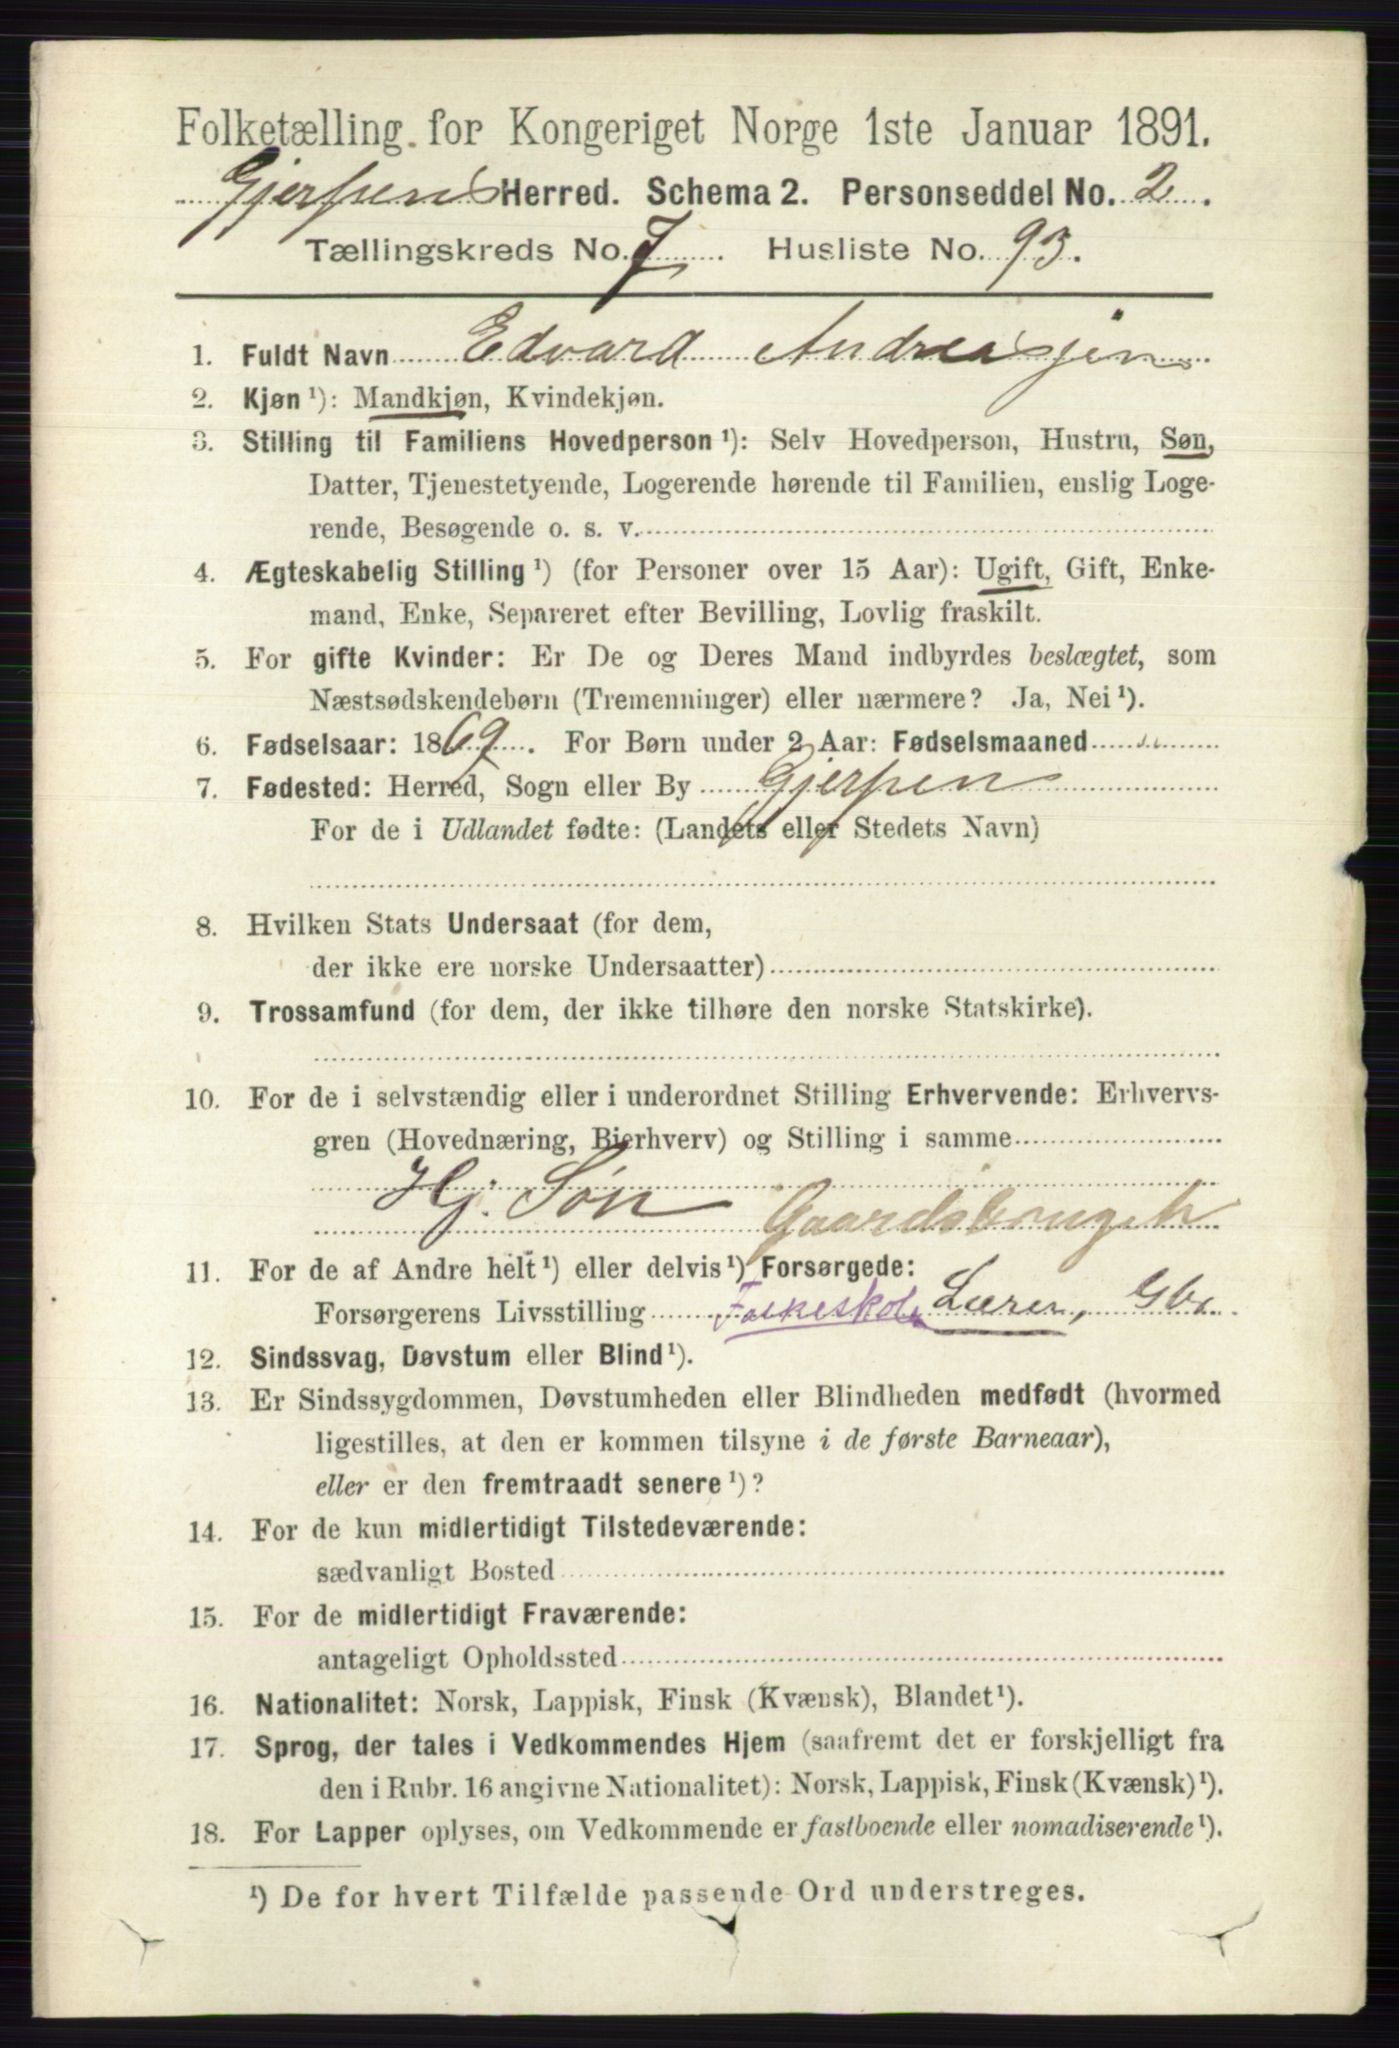 Folketælling for Kongeriget Norge 1ste Januar 1891.
Gjerpens Herred. Schema 2. Personseddel No. 2.
Tællingskreds No. 7 Husliste No. 93.
1. Fuldt Navn Edvard Andreasjen
2. Kjøn ¹): Mandkjøn, Kvindekjøn.
3. Stilling til Familiens Hovedperson ¹): Selv Hovedperson, Hustru, Søn,
Datter, Tjenestetyende, Logerende hørende til Familien, enslig Loge-
rende, Besøgende o. s. v.
4. Ægteskabelig Stilling ¹) (for Personer over 15 Aar): Ugift, Gift, Enke-
mand, Enke, Separeret efter Bevilling, Lovlig fraskilt.
5. For gifte Kvinder: Er De og Deres Mand indbyrdes beslægtet, som
Næstsødskendebørn (Tremenninger) eller nærmere? Ja, Nei ¹).
6. Fødselsaar: 1869. For Børn under 2 Aar: Fødselsmaaned
7. Fødested: Herred, Sogn eller By Gjerpen
For de i Udlandet fødte: (Landets eller Stedets Navn)
8. Hvilken Stats Undersaat (for dem,
der ikke ere norske Undersaatter)
9. Trossamfund (for dem, der ikke tilhøre den norske Statskirke).
10. For de i selvstændig eller i underordnet Stilling Erhvervende: Erhvervs-
gren (Hovednæring, Bierhverv) og Stilling i samme
Hj. Søn Gaardsbruget
11. For de af Andre helt ¹) eller delvis ¹) Forsørgede:
Forsørgerens Livsstilling Folkeskole Lærer, Gbr
12. Sindssvag, Døvstum eller Blind ¹).
13. Er Sindssygdommen, Døvstumheden eller Blindheden medfødt (hvormed
ligestilles, at den er kommen tilsyne i de første Barneaar),
eller er den fremtraadt senere ¹)?
14. For de kun midlertidigt Tilstedeværende:
sædvanligt Bosted
15. For de midlertidigt Fraværende:
antageligt Opholdssted
16. Nationalitet: Norsk, Lappisk, Finsk (Kvænsk), Blandet ¹).
17. Sprog, der tales i Vedkommendes Hjem (saafremt det er forskjelligt fra
den i Rubr. 16 angivne Nationalitet): Norsk, Lappisk, Finsk (Kvænsk) ¹).
18. For Lapper oplyses, om Vedkommende er fastboende eller nomadiserende ¹).
¹) De for hvert Tilfælde passende Ord understreges.